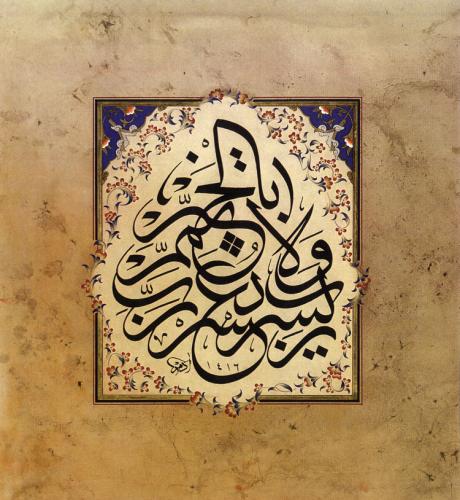 رب يسر ولا تعسر رب تمم بالخير
١٤١٦